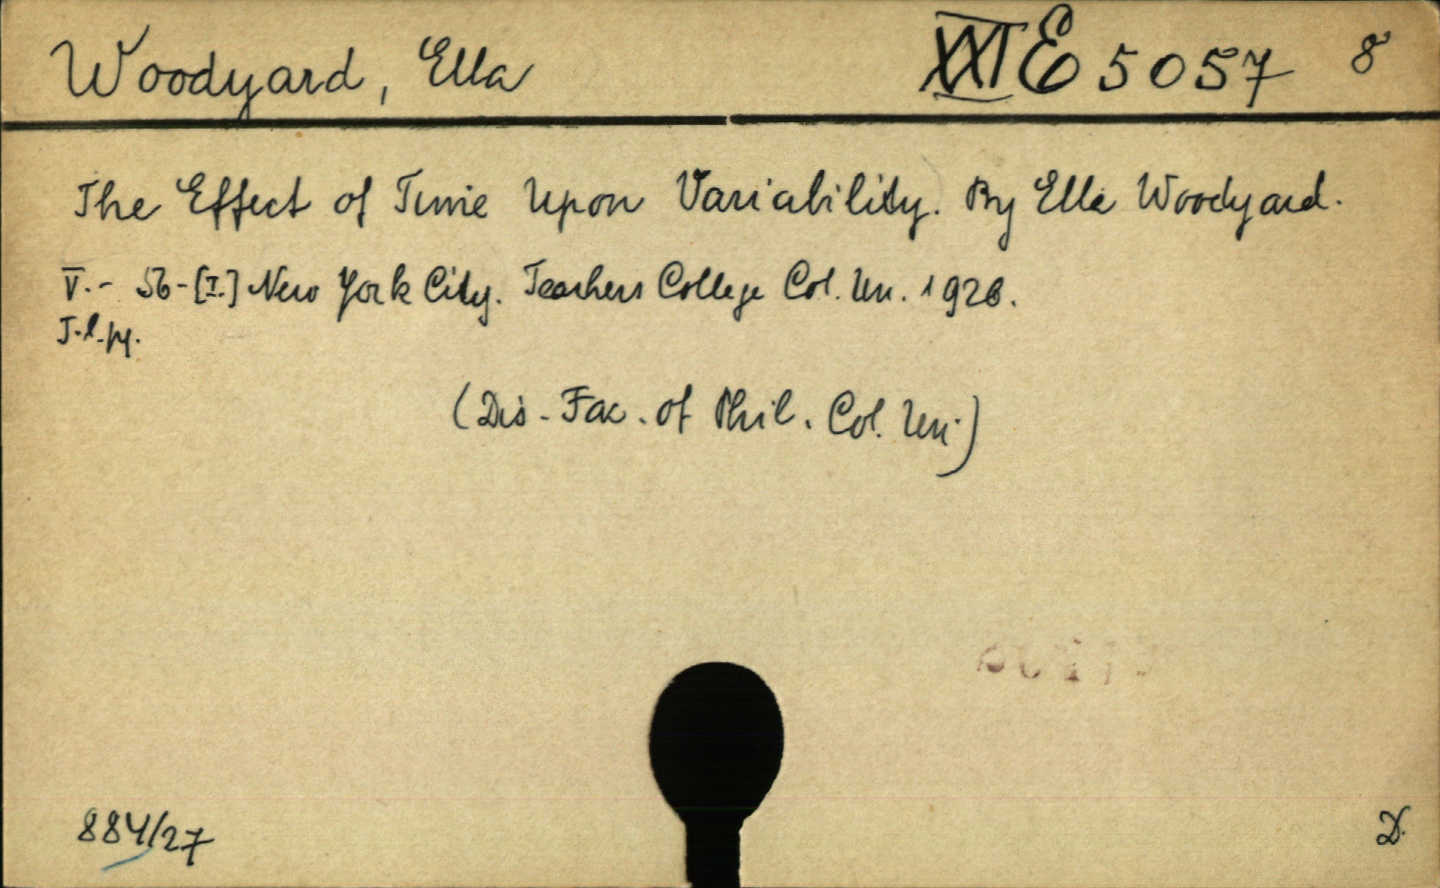 Woodyard, Ella XXI E 5057 8
The Effect of Time Upon Variability. By Ella Woodyard.
V.- 56-[I.] New York City. Teachers College Col. Un. 1926.
J.l.
(Dis. Fac. of Phil. Col. Un.)
884/27 D.